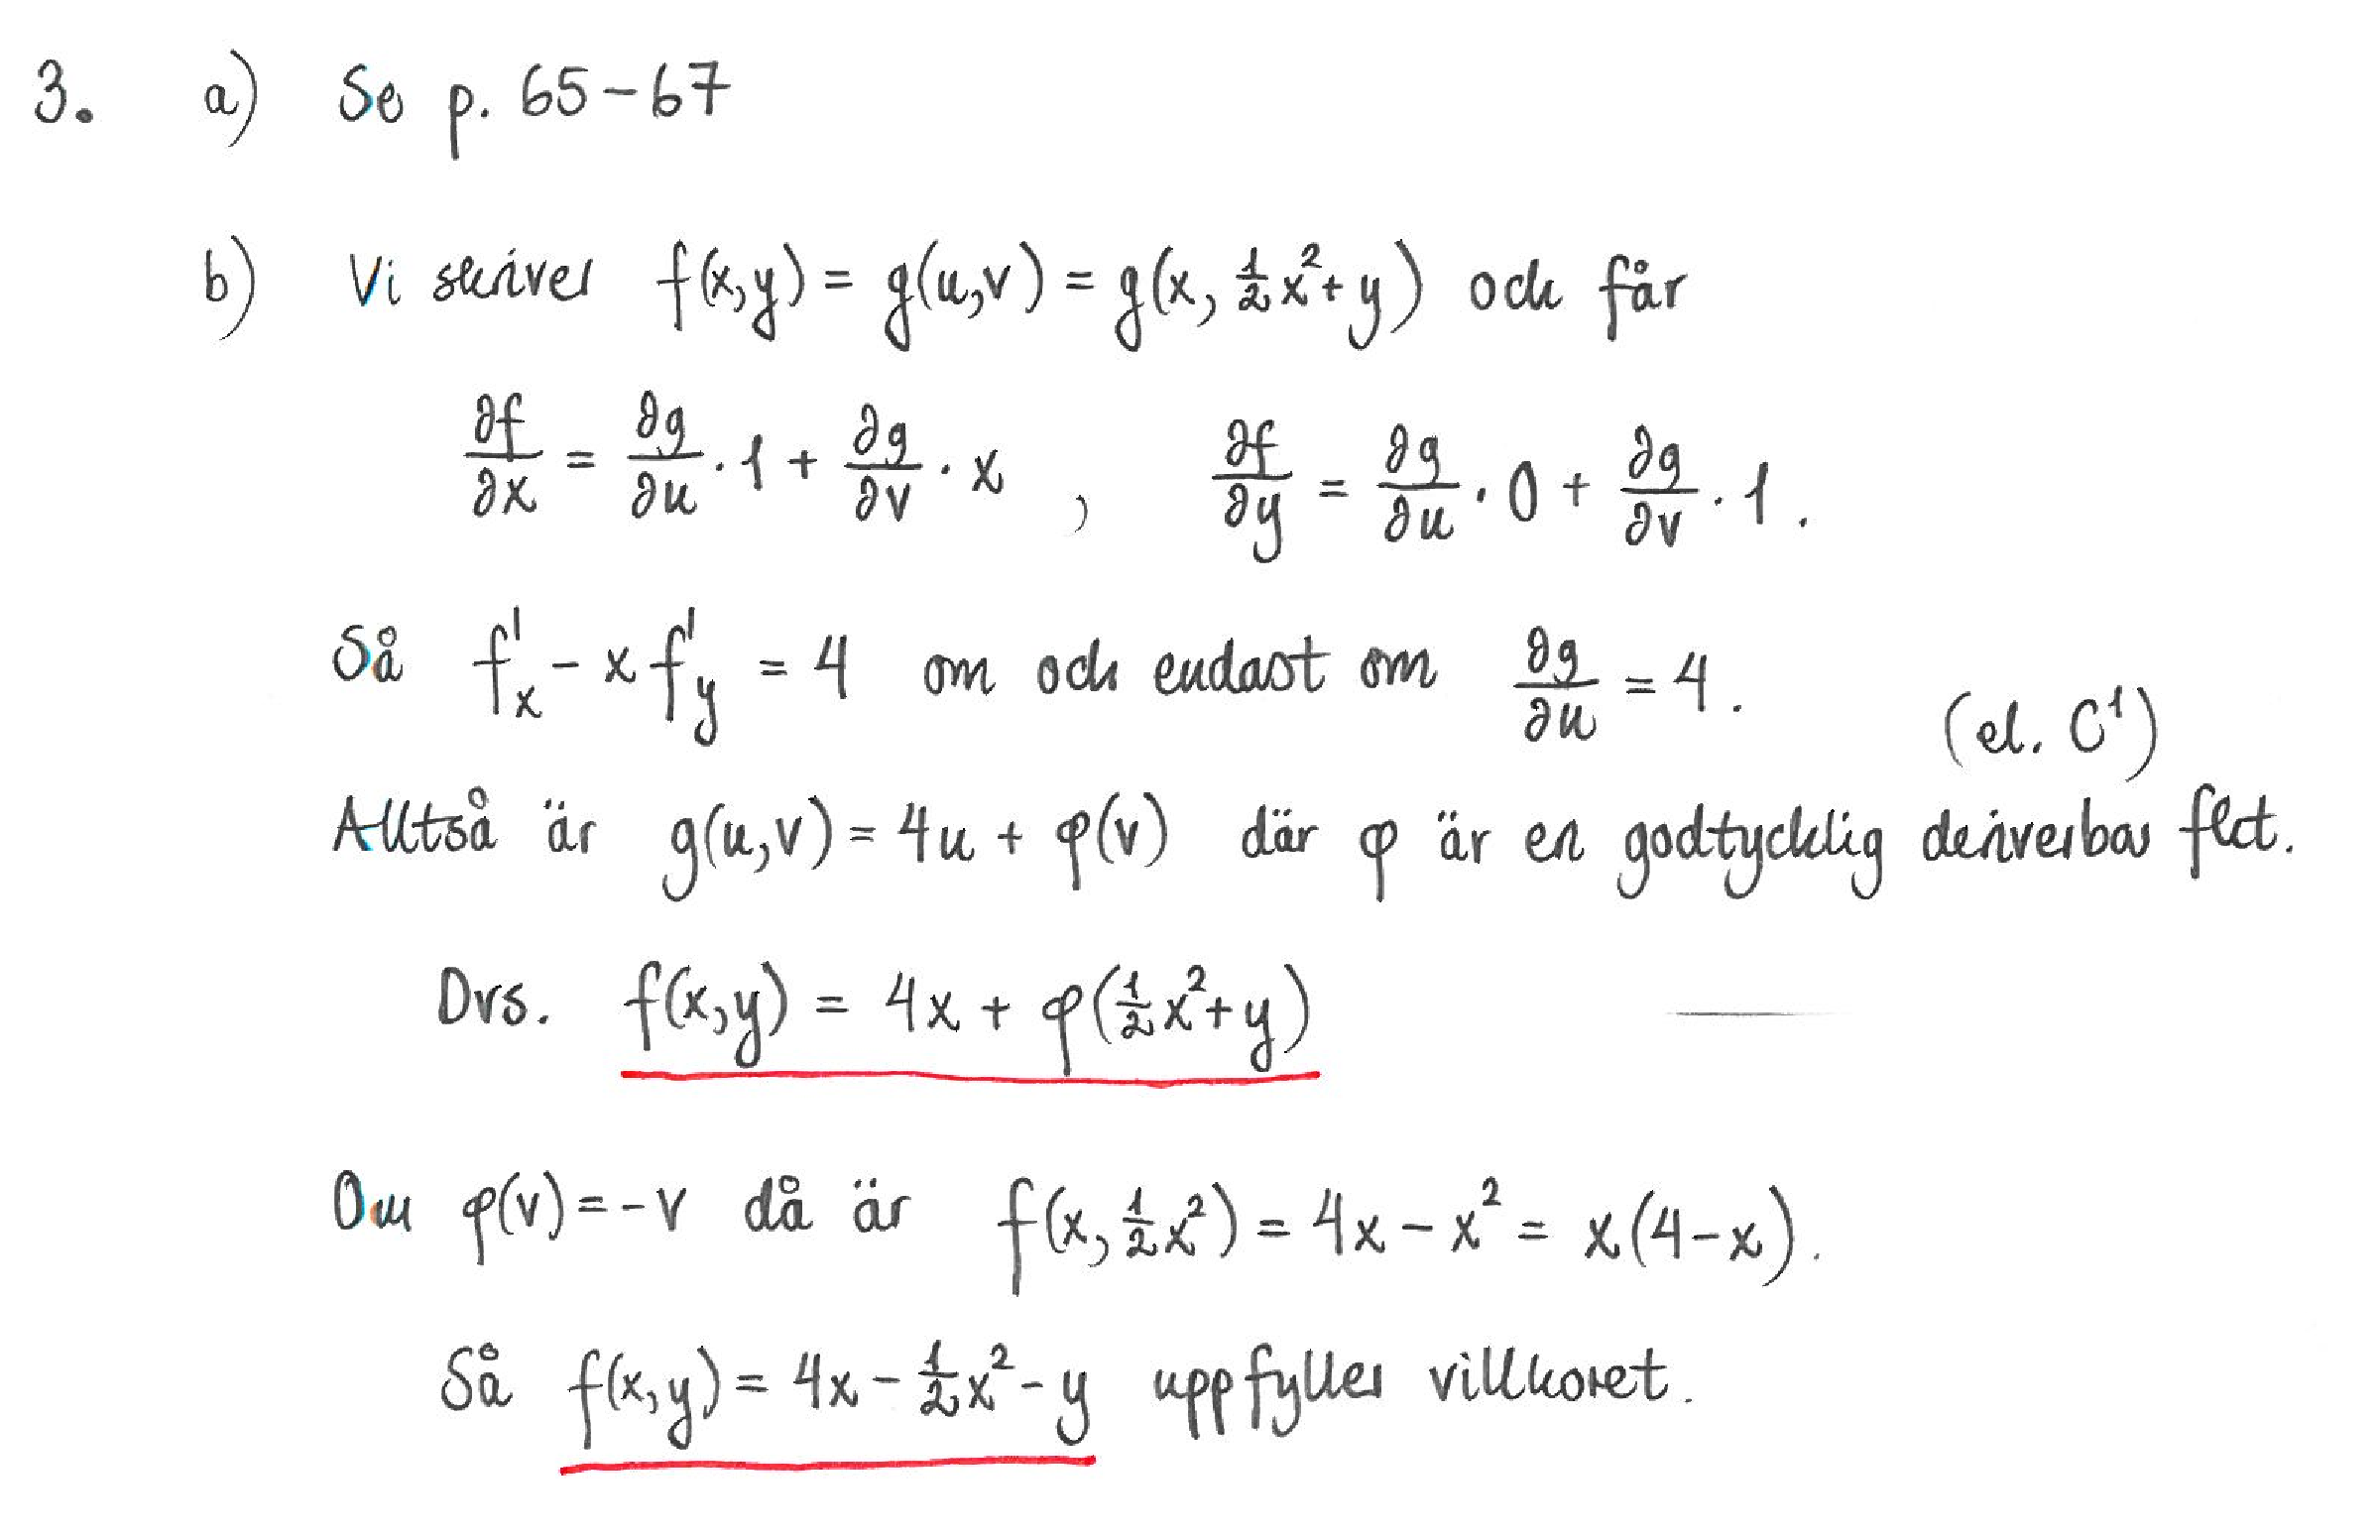 3. a) Se p. 65-67
b) Vi skriver f(x,y) = g(u,v) = g(x, ½x²+y) och får
∂f/∂x = ∂g/∂u · 1 + ∂g/∂v · x , ∂f/∂y = ∂g/∂u · 0 + ∂g/∂v · 1 .
Så f'x - x f'y = 4 om och endast om ∂g/∂u = 4 .
(el. C¹)
Alltså är g(u,v) = 4u + φ(v) där φ är en godtycklig deriverbar fkt.
Dvs. f(x,y) = 4x + φ(½x²+y)
Om φ(v) = -v då är f(x, ½x²) = 4x - x² = x(4-x) .
Så f(x,y) = 4x - ½x² - y uppfyller villkoret .